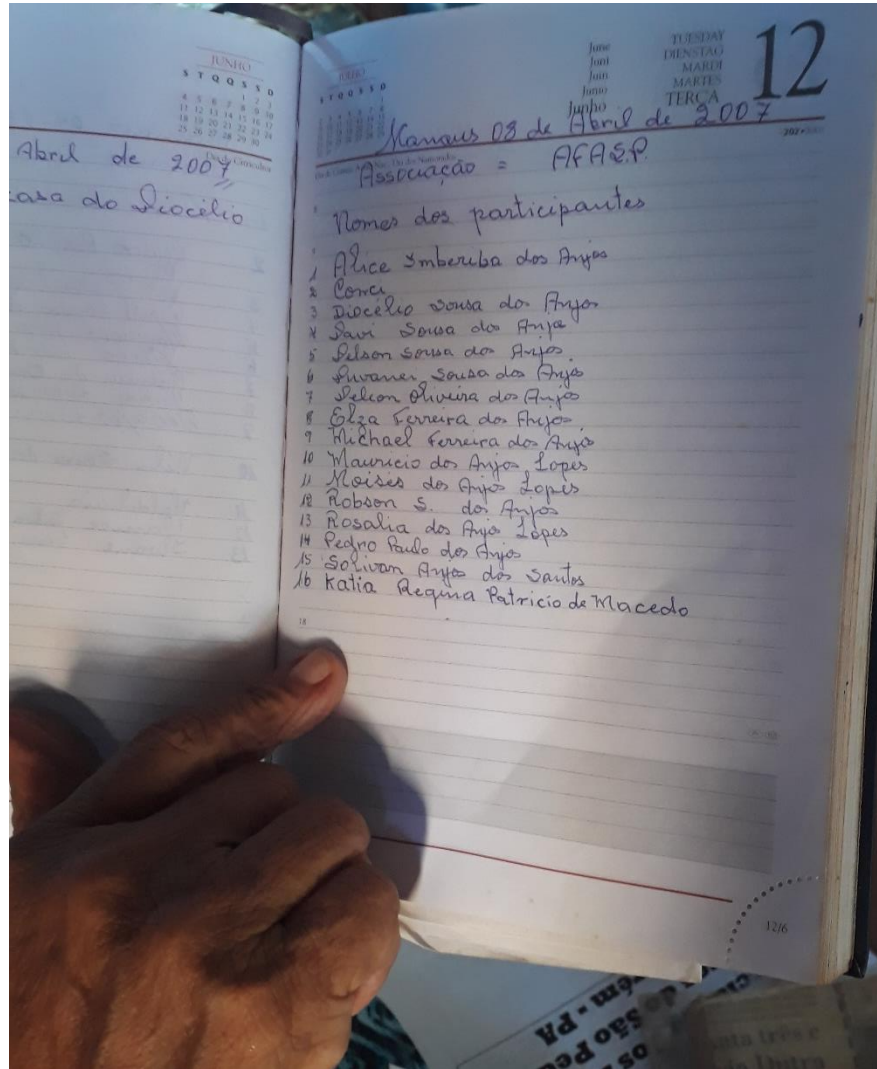 JUNHO
S T Q Q S S D
1 2 3
4 5 6 7 8 9 10
11 12 13 14 15 16 17
18 19 20 21 22 23 24
25 26 27 28 29 30
Abril de 2007
casa do Diocélio
JULHO
S T Q Q S S D
June
Juni
Juin
Junio
Junho
TUESDAY
DIENSTAG
MARDI
MARTES
TERÇA
12
Manaus 08 de Abril de 2007
Associação = AFASP.
Nomes dos participantes
1 Alice Imberiba dos Anjos
2 Conci
3 Diocélio Sousa dos Anjos
4 Davi Sousa dos Anjos
5 Delson Sousa dos Anjos.
6 Sousa dos Anjos
7 Oliveira dos Anjos
8 Elza Ferreira dos Anjos.
9 Michael Ferreira dos Anjos
10 Mauricio dos Anjos Lopes
11 Moisés dos Anjos Lopes
12 Robson S. dos Anjos
13 Rosalia dos Anjos Lopes
14 Pedro Paulo dos Anjos
15 Solivan Anjos dos Santos
16 Katia Regina Patricio de Macedo
18
12/6
São Pe
ém - PA
nta três e
Dutra